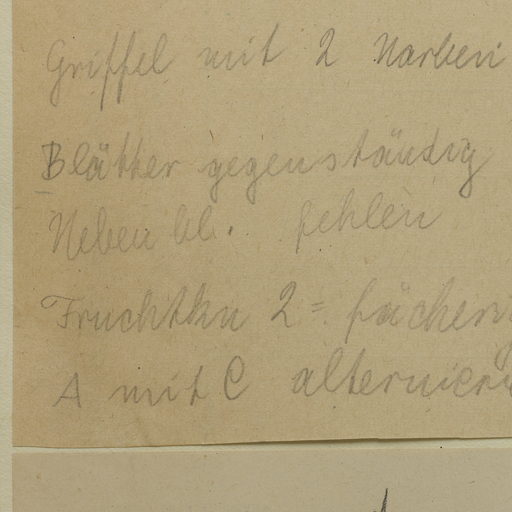 Griffel mit 2 Narben
Blätter gegenständig
Nebenbl. fehlen
Fruchtkn 2 = fächerig
A mit C alternieri